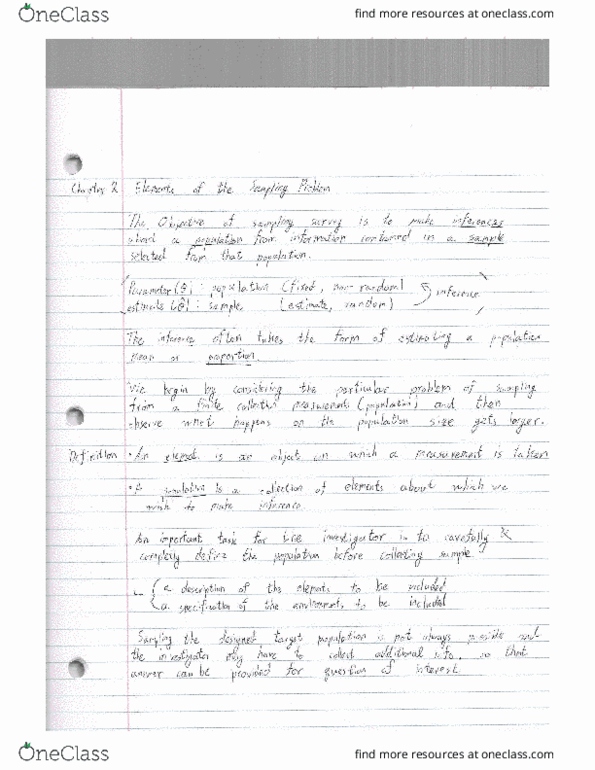 OneClass
find more resources at oneclass.com
Chapter 2 Elements of the Sampling Problem
The Objective of sampling survey is to make inferences
about a population from information contained in a sample
selected from that population.
Parameter (θ) : population (fixed, non-random)
estimate (θ̂) : sample (estimate, random)
inference
The inference often takes the form of estimating a population
mean or proportion.
We begin by considering the particular problem of sampling
from a finite collection measurements (population) and then
observe what happens as the population size gets larger.
Definition • An element is an object on which a measurement is taken
• A population is a collection of elements about which we
wish to make inference.
An important task for the investigator is to carefully &
completely define the population before collecting sample.
a description of the elements to be included
a specification of the to be included
Sampling the designed target population is not always possible and
the investigator may have to collect additional info, so that
answer can be provided for question of interest.
OneClass
find more resources at oneclass.com